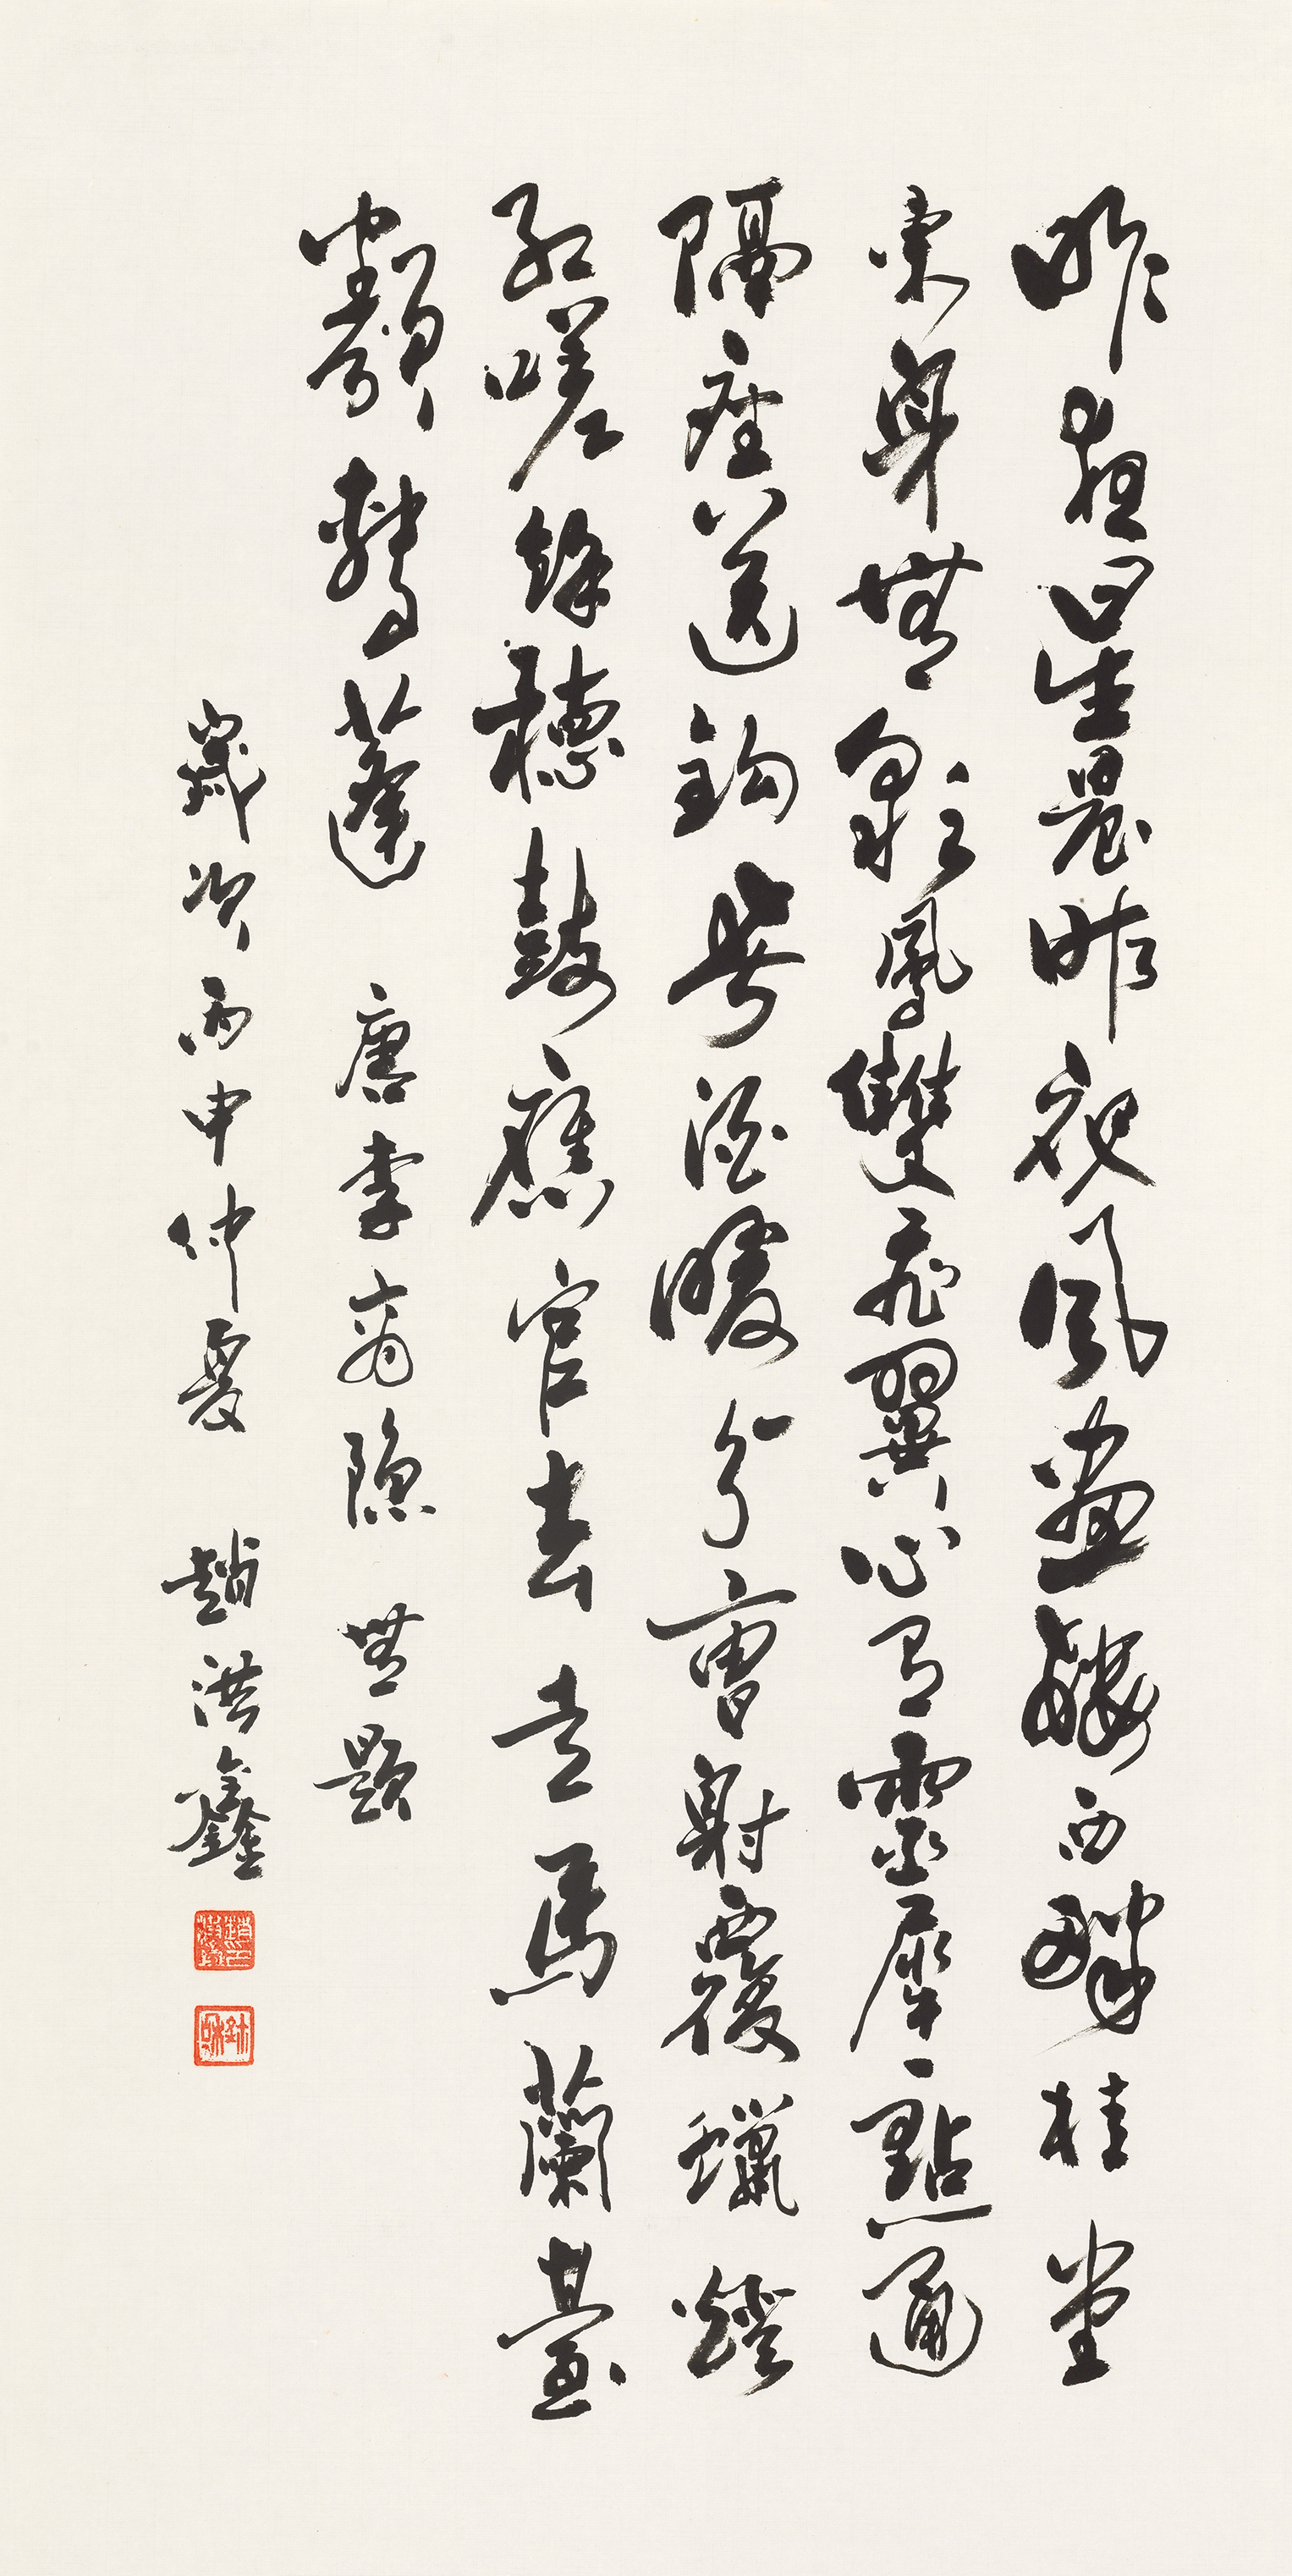 昨夜星辰昨夜風畫樓西畔桂堂
東身無彩鳳雙飛翼心有靈犀一點通
隔座送鉤春酒暖分曹射覆蠟燈
紅嗟餘聽鼓應官去走馬蘭臺
類轉蓬 唐李商隱無題
歲次丙申仲夏 趙洪鑫